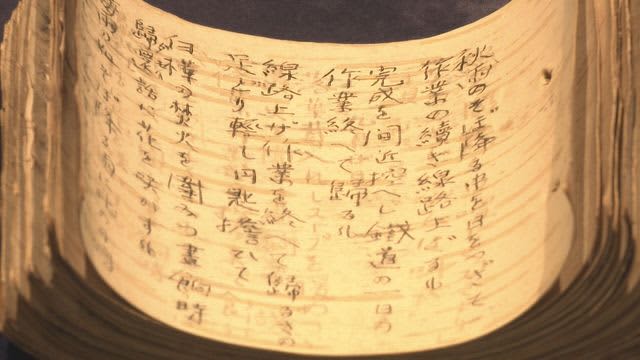 秋雨のそぼ降る中を日をつぎて
作業の續く線路上げすも
完成を間近控へし鐵道の一日の
作業終へて歸るも
線路上げ作業を終へて歸るさの
足とり輕し円匙擔ひて
白樺の焚火を圍みつ晝餉時
歸還の話に花を咲かすも